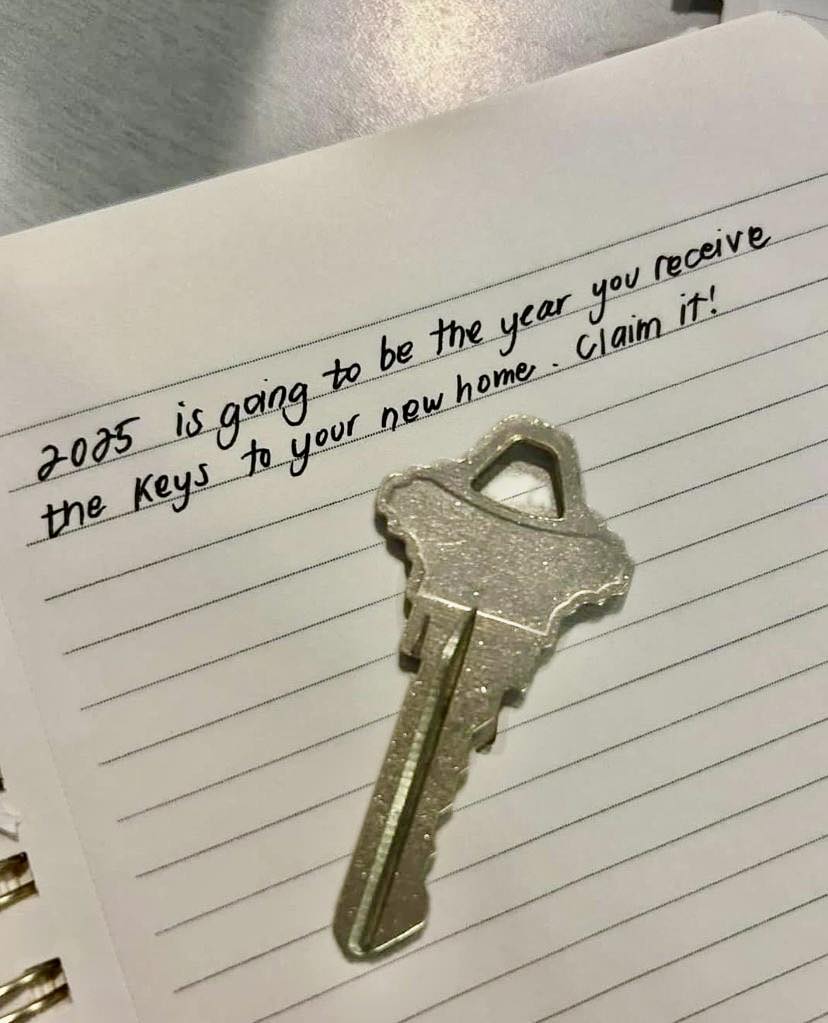 2025 is going to be the year you receive
the keys to your new home. Claim it!